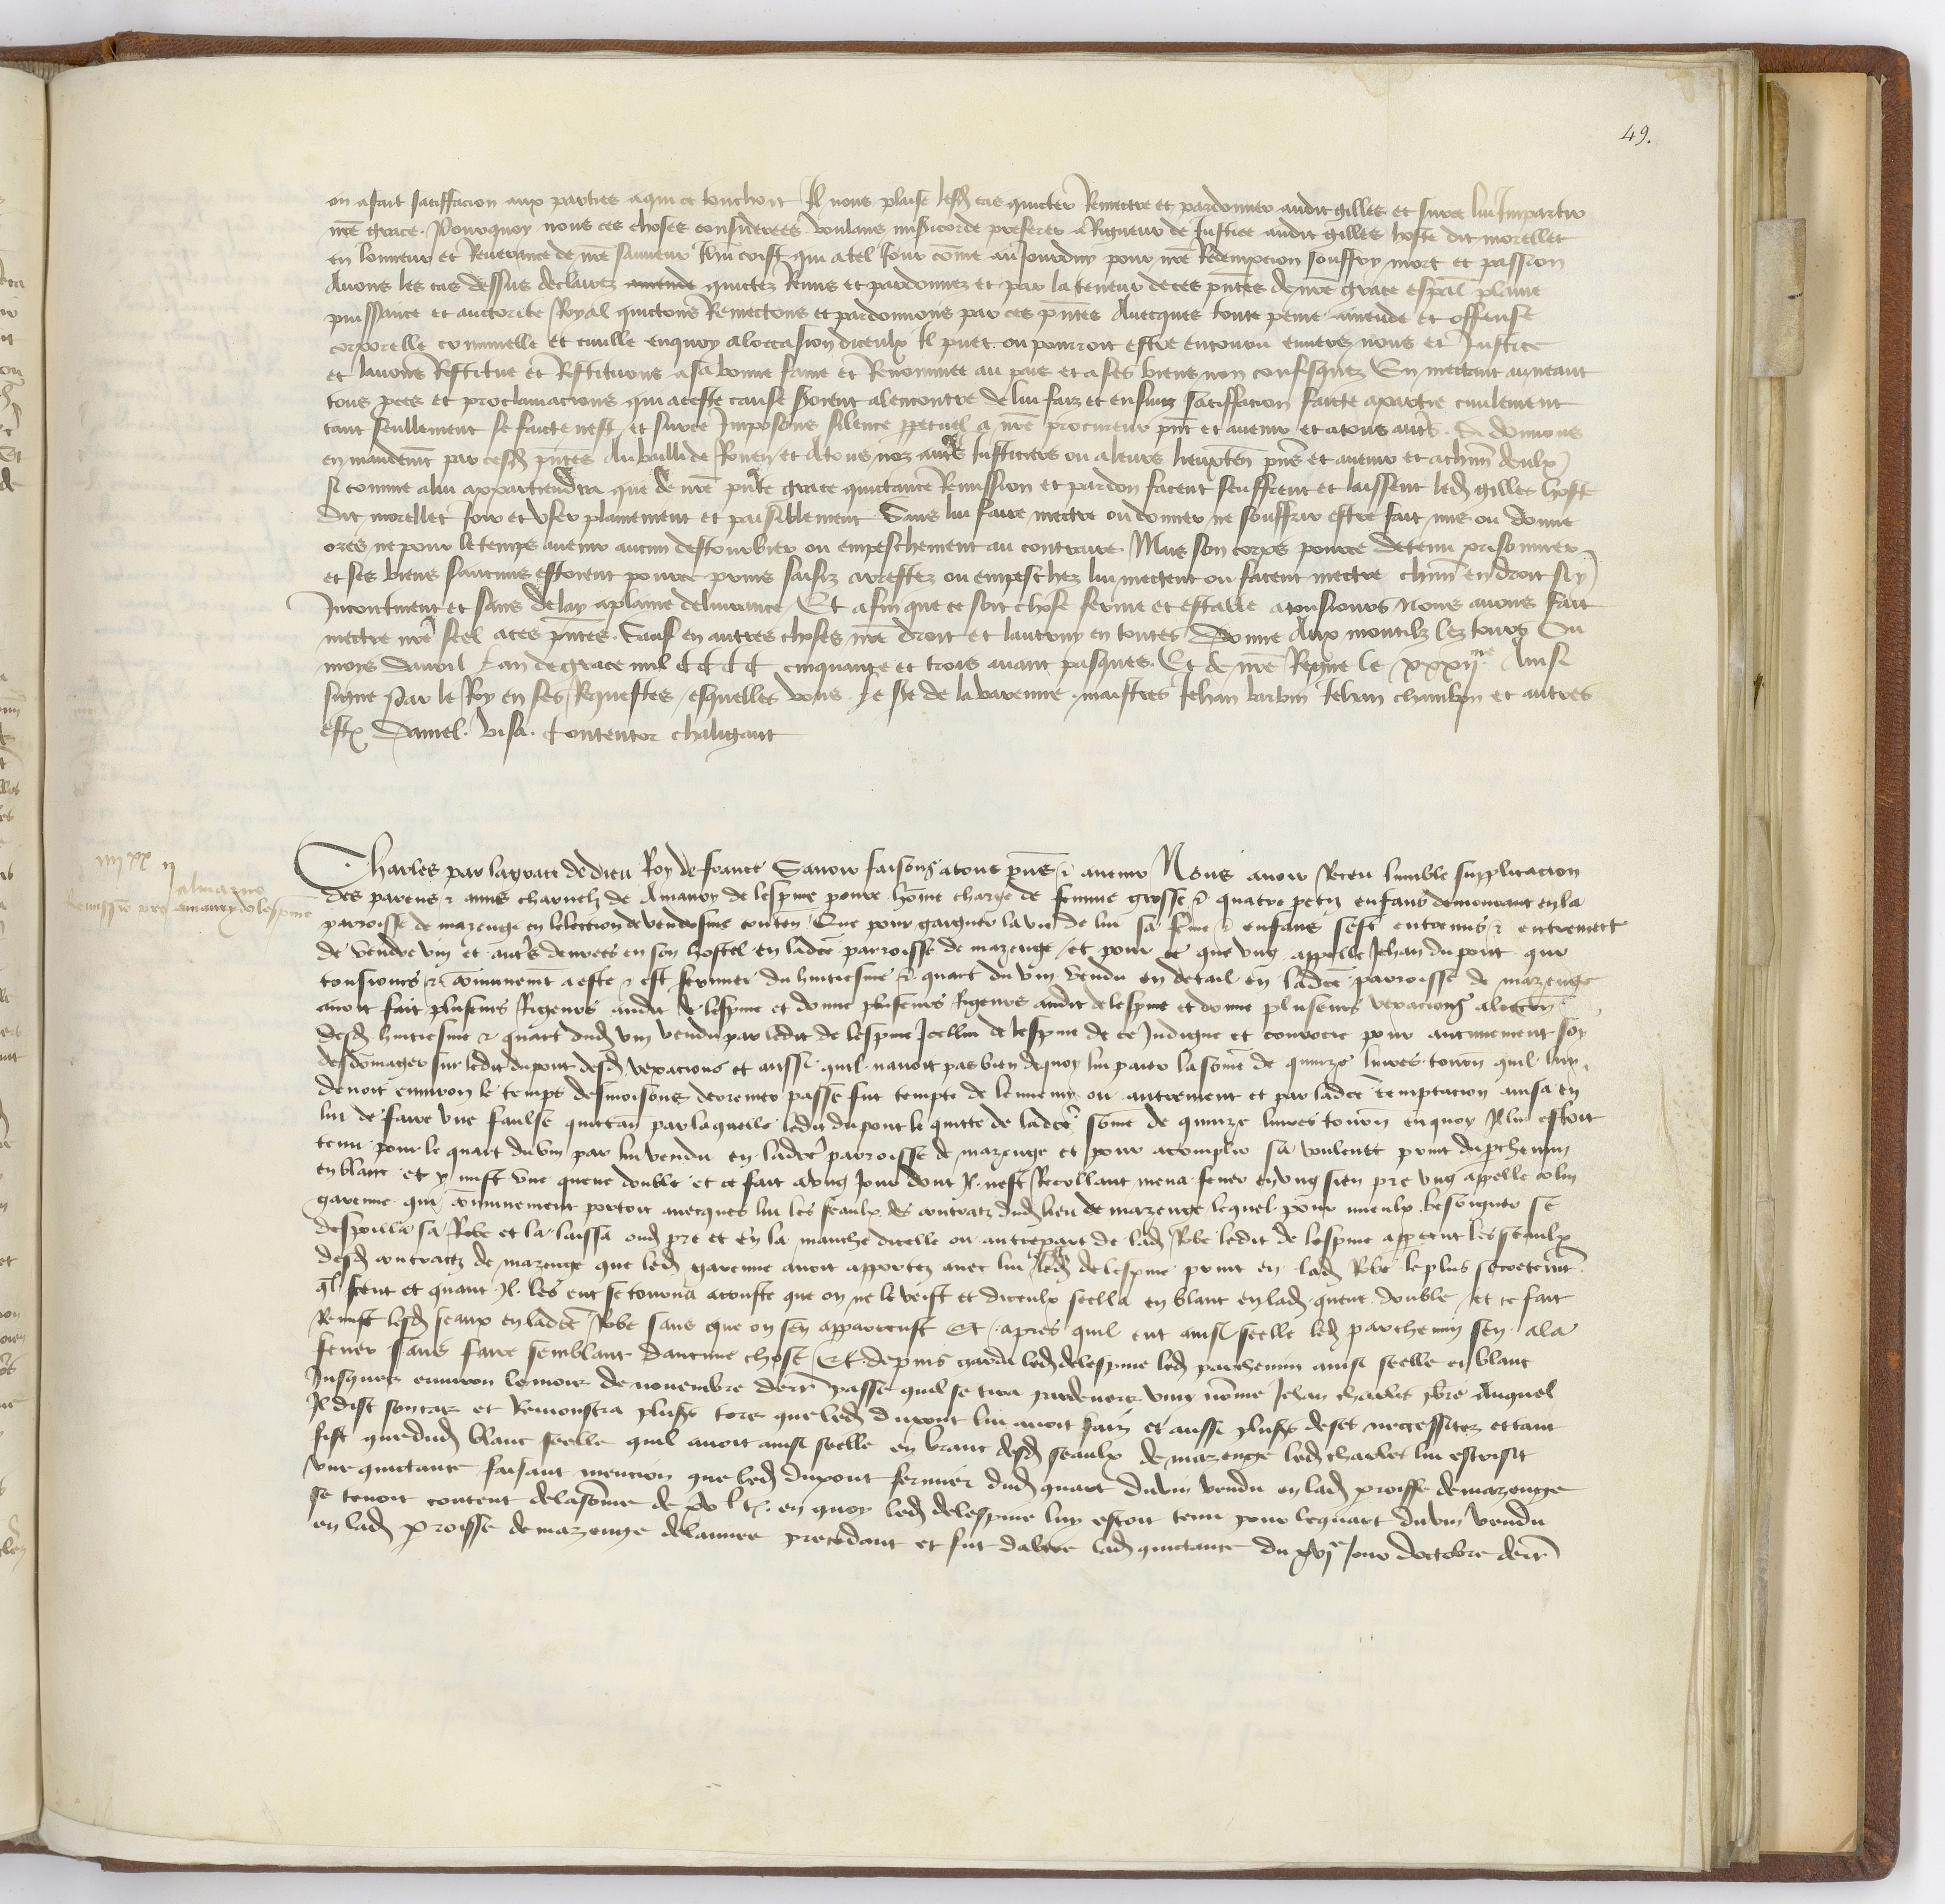 49.
on a fait satiffacion aux parties a qui ce touchoit Il nous plaise lesd cas quicter Remectre et pardonner audit gilles et surce lui Impartir
nre grace. Pourquoy nous ces choses considerees voulans misicorde preferer a Rigueur de Justice audit gilles hoste dit morellet
en lonneur et Reverance de nre sauveur Jhu crist qui a tel Jour come au Jourduy pour nre Redempcion souffry mort et passion
Avons les cas dessus declairez quictez Remis et pardonnez et par la teneur de ces pntes de nre grace espal plaine
puissance et auctorite Royal quictons Remectons et pardonnons par ces pntes Avecques toute peine amende et offense
corporelle criminelle et civille enquoy a loccasion diceulx Il puet ou pourroit estre encouru envers nous et Justice
et lavons Restitue et Restituons a sa bonne fame et Renommee au pais et a ses biens non confisquez En mectant au neant
tous pces et proclamacions qui a ceste cause seroient alencontre de lui faiz et ensuiz satiffacion faicte a partie civilement
tant seullement se faicte nest et surce Imposons silence ppetuel a nre procureur pnt et avenir et a tous autrs. Si donnons
en mandemt par cesd pntes Au bailli de Rouen et Atous noz autrs Justiciers ou a leurs lieuxten pns et avenir et achun deulx
si comme a lui appartiendra que de nre pnte grace quictance Remission et pardon facent seuffrent et laissent led gilles hoste
dit morellet Joir et User plainement et paisiblement Sans lui faire mectre ou donner ne souffrir estre fait mis ou donne
ores ne pour le temps avenir aucun destourbier ou empeschement au contraire Mais son corps pource detenu prisonnier
et ses biens saucuns estoient pource prins saisiz arrestez ou empeschez lui mectent ou facent mectre chun endroit soy
Incontinent et sans delay a plaine delivrance Et afin que ce soit chose ferme et estable a tousiours Nous avons fait
mectre nre seel a ces pntes. Sauf en autres choses nre droit et lautruy en toutes Donne Aux montilz lez tours Ou
mois davril Lan de grace mil CCCC cinquante et trois avant pasques. Et de nre Regne le xxxijme Ainsi
signe Par le Roy en ses Requestes esquelles vous Le sr de la varenne maistres Jehan barbin Jehan chambon et autres
estx Daniel. visa. Contentor chaligaut
iiij xx ij
almazno
Remissio pro amaury de lespine
Charles par la grace de dieu Roy de france Savoir faisons a tous pns & avenir Nous avoir Receu lumble supplicacion
des parens & amis charnelz de Amaury de lespine povre home charge de femme grosse & quatre petiz enfans demourant en la
parroisse de mazenge en lelection de vendosme conten Que pour gaigner la vie de lui sa fme & enfans sest entremis & entremect
de vendre vin et autrs denrees en son hostel en ladce parroisse de mazenge et pour ce que ung appelle Jehan du pont qui
tousiours & comunemt a este & est fermier du huitiesme & quart du vin vendu en detail en ladce parroisse de mazenge
avoit fait pluseurs Rigeurs audit de lespine et donne pluseurs Rigeurs audit de lespine et donne pluseurs vexacions aloccon
desd huitiesme & quart dud vin vendu par ledit de lespine Icellui de lespine de ce Indigne et courrocie pour aucunement soy
desdomager sur ledit dupont desd vexacions et aussi quil navoit pas bien dequoy lui paier la some de quinze livres tourn quil lui
devoit environ le temps desmoisons derrenier passe fut tempte de lennemy ou autrement et par ladce temptacion avisa en
lui de faire une faulse quictan par laquelle ledit dupont le quitte de ladce some de quinze livres tourn enquoy Il lui estoit
tenu pour le quart du vin par lui vendu en ladce parroisse de mazenge et pour acomplir sa voulente print du pchemin
en blanc et y mist une queue double et ce fait a ung Jour dont Il nest Recollant mena fener en ung sien pre ung appelle colin
garenne qui comunement portoit avecques lui les seaulx des contratz dud lieu de mazenge lequel pour mieulx besoigner se
despoilla sa Robe et la laissa oud pre et en la manche dicelle ou autrepart de lad Robe ledit de lespine appercut les seaulx
desd contractz de mazenge que led garenne avoit apportez avec lui led delespine print en lad Robe le plus secretemt
ql sceut et quant Il les eut se tourna acouste que on ne le veist et diceulx seella en blanc en lad queue double et ce fait
Remist lesd seaux en ladce Robe sans que on sen apparceust Et apres quil eut ainsi seelle led parchemin sen ala
fener sans faire semblant daucune chose Et depuis garda led delespine led parchemin ainsi seelle en blanc
Jusques environ le mois de novembre derr passe quil se tira pardevers ung nome Jehan charlet pbre Auquel
Il dist son cas et Remonstra plus tors que led dupont lui avoit faiz et aussi plus de ses neccessitez et tant
fist que dud blanc seelle quil avoit ainsi seelle en blanc desd seaulx de mazenge led charlet lui escrisit
une quictance faisant mencion que led dupont fermier dud quart du vin vendu en lad proisse de mazenge
se tenoit content de la somme de xv l. t. en quoy led delespine luy estoit tenu pour le quart du vin vendu
en lad proisse de mazenge de lannee precedant et fut datee lad quictance du xvje Jour doctobre derr